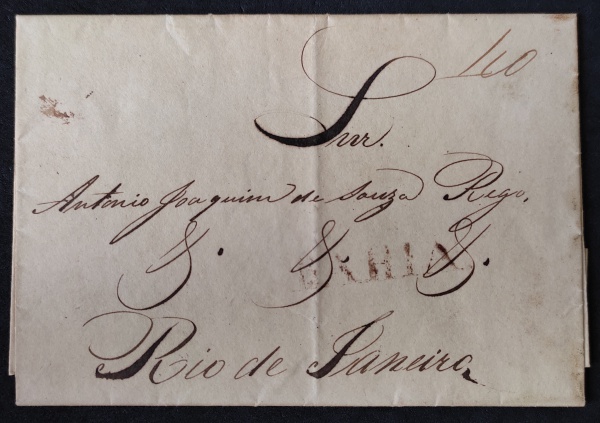 40
Snr.
Antonio Joaquim de Souza Rego,
&. &. &.
BAHIA
Rio de Janeiro